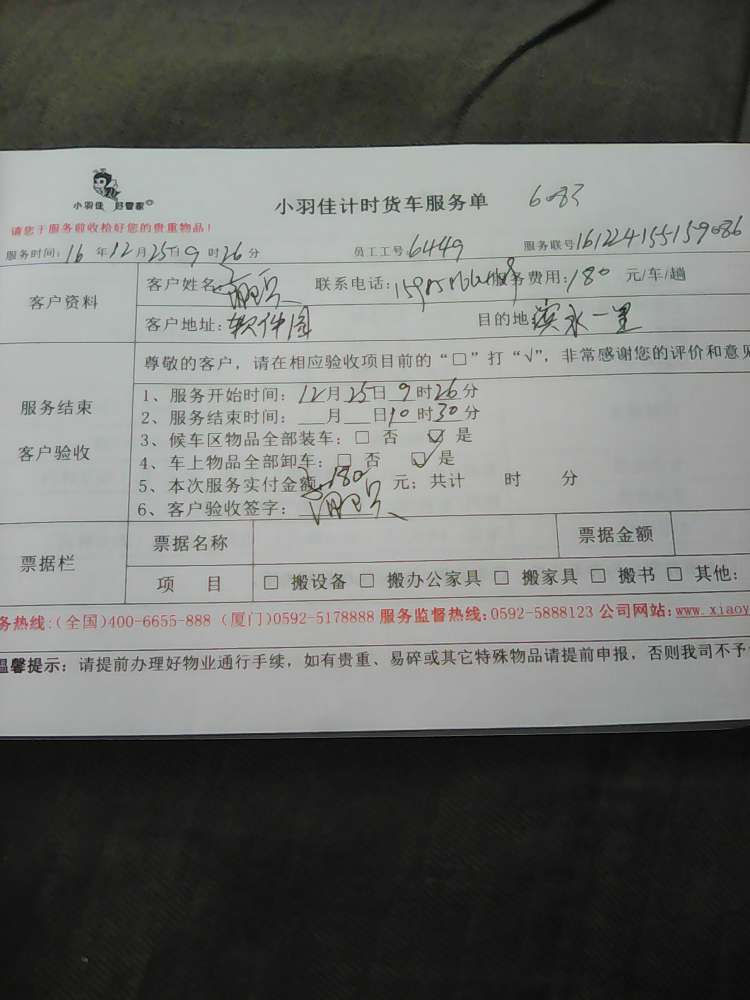 小羽佳 好管家®
小羽佳计时货车服务单 6083
请您于服务前收检好您的贵重物品！
服务时间：16 年12月25日9 时26分 员工工号6449 服务联号161224155159086
客户资料
客户姓名： 联系电话： 服务费用：180 元/车/趟
客户地址：软件园 目的地：滨水一里
尊敬的客户，请在相应验收项目前的“□”打“√”，非常感谢您的评价和意见
服务结束
客户验收
1、服务开始时间：12月25日9时26分
2、服务结束时间：__月__日10时30分
3、候车区物品全部装车：□ 否 ☑ 是
4、车上物品全部卸车：□ 否 ☑ 是
5、本次服务实付金额：180 元；共计 时 分
6、客户验收签字：
票据栏
票据名称 票据金额
项 目 □ 搬设备 □ 搬办公家具 □ 搬家具 □ 搬书 □ 其他：
务热线：(全国)400-6655-888 (厦门)0592-5178888 服务监督热线：0592-5888123 公司网站：www.xiaoy
温馨提示：请提前办理好物业通行手续，如有贵重、易碎或其它特殊物品请提前申报，否则我司不予